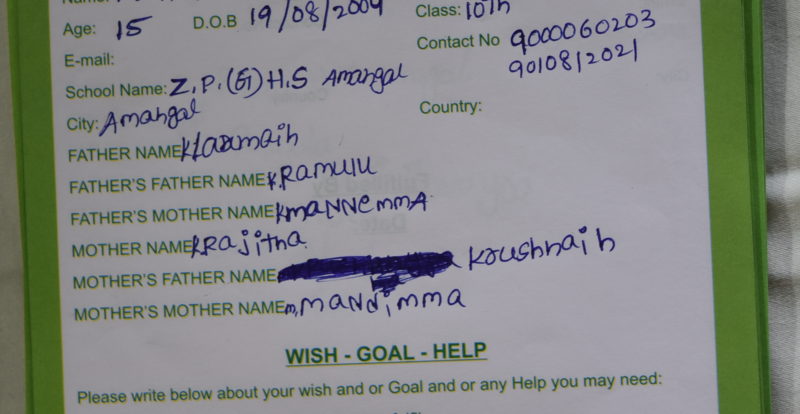 Age: 15 D.O.B 19/08/2009 Class: 10th
E-mail: Contact No 9000060203
9010812021
School Name: Z.P.(G)H.S Amangal
City: Amangal Country:
FATHER NAME
FATHER'S FATHER NAME K.RAMULU
FATHER'S MOTHER NAME K MANNEMMA
MOTHER NAME K RAjitha
MOTHER'S FATHER NAME
MOTHER'S MOTHER NAME
WISH - GOAL - HELP
Please write below about your wish and or Goal and or any Help you may need: